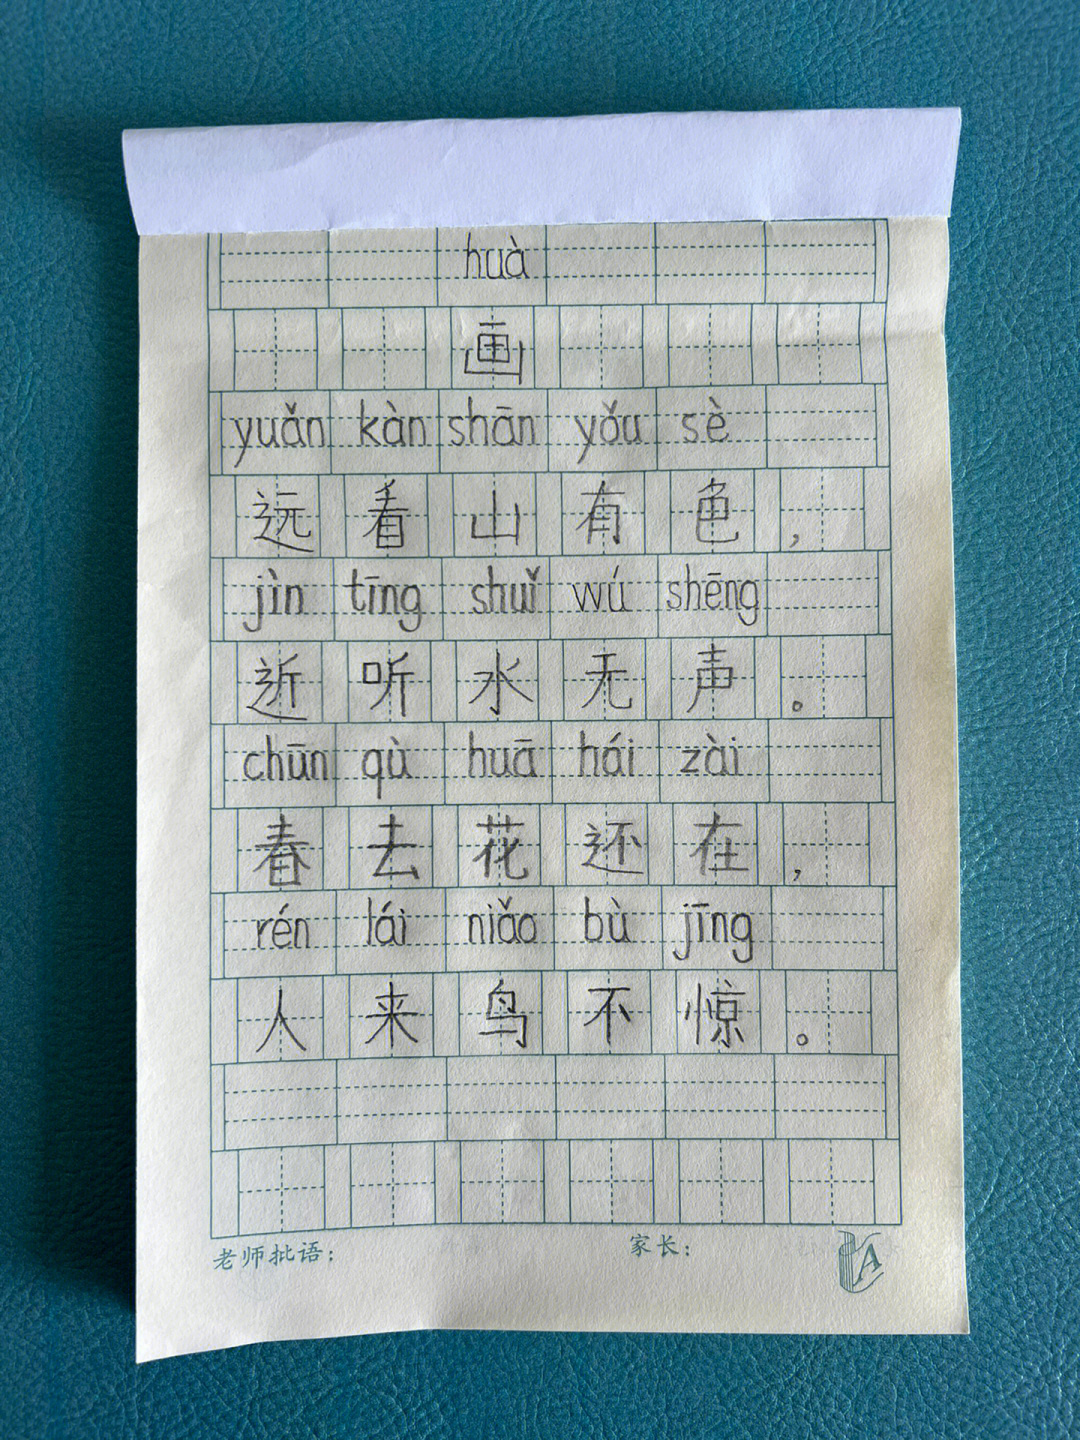 huà
画
yuǎn kàn shān yǒu sè
远看山有色，
jìn tīng shuǐ wú shēng
近听水无声。
chūn qù huā hái zài
春去花还在，
rén lái niǎo bù jīng
人来鸟不惊。
老师批语： 家长：
A